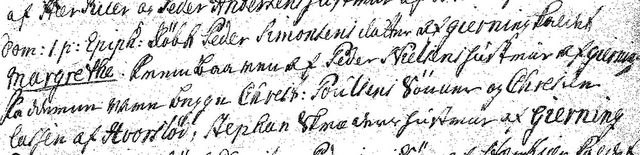 af Her Riber og Peder Andersens hustrue af
Dom: 1 p: Epiph: døbt Peder Simonsens datter af gierning kaldet
Margrethe. frembaaren af Peder Nielsens hustrue af gierning
fadderne vare begge Christ: Poulsens Sönner og Christen
Lassen af Hvorslöv, Stephan Skræders hustrue af Gierning